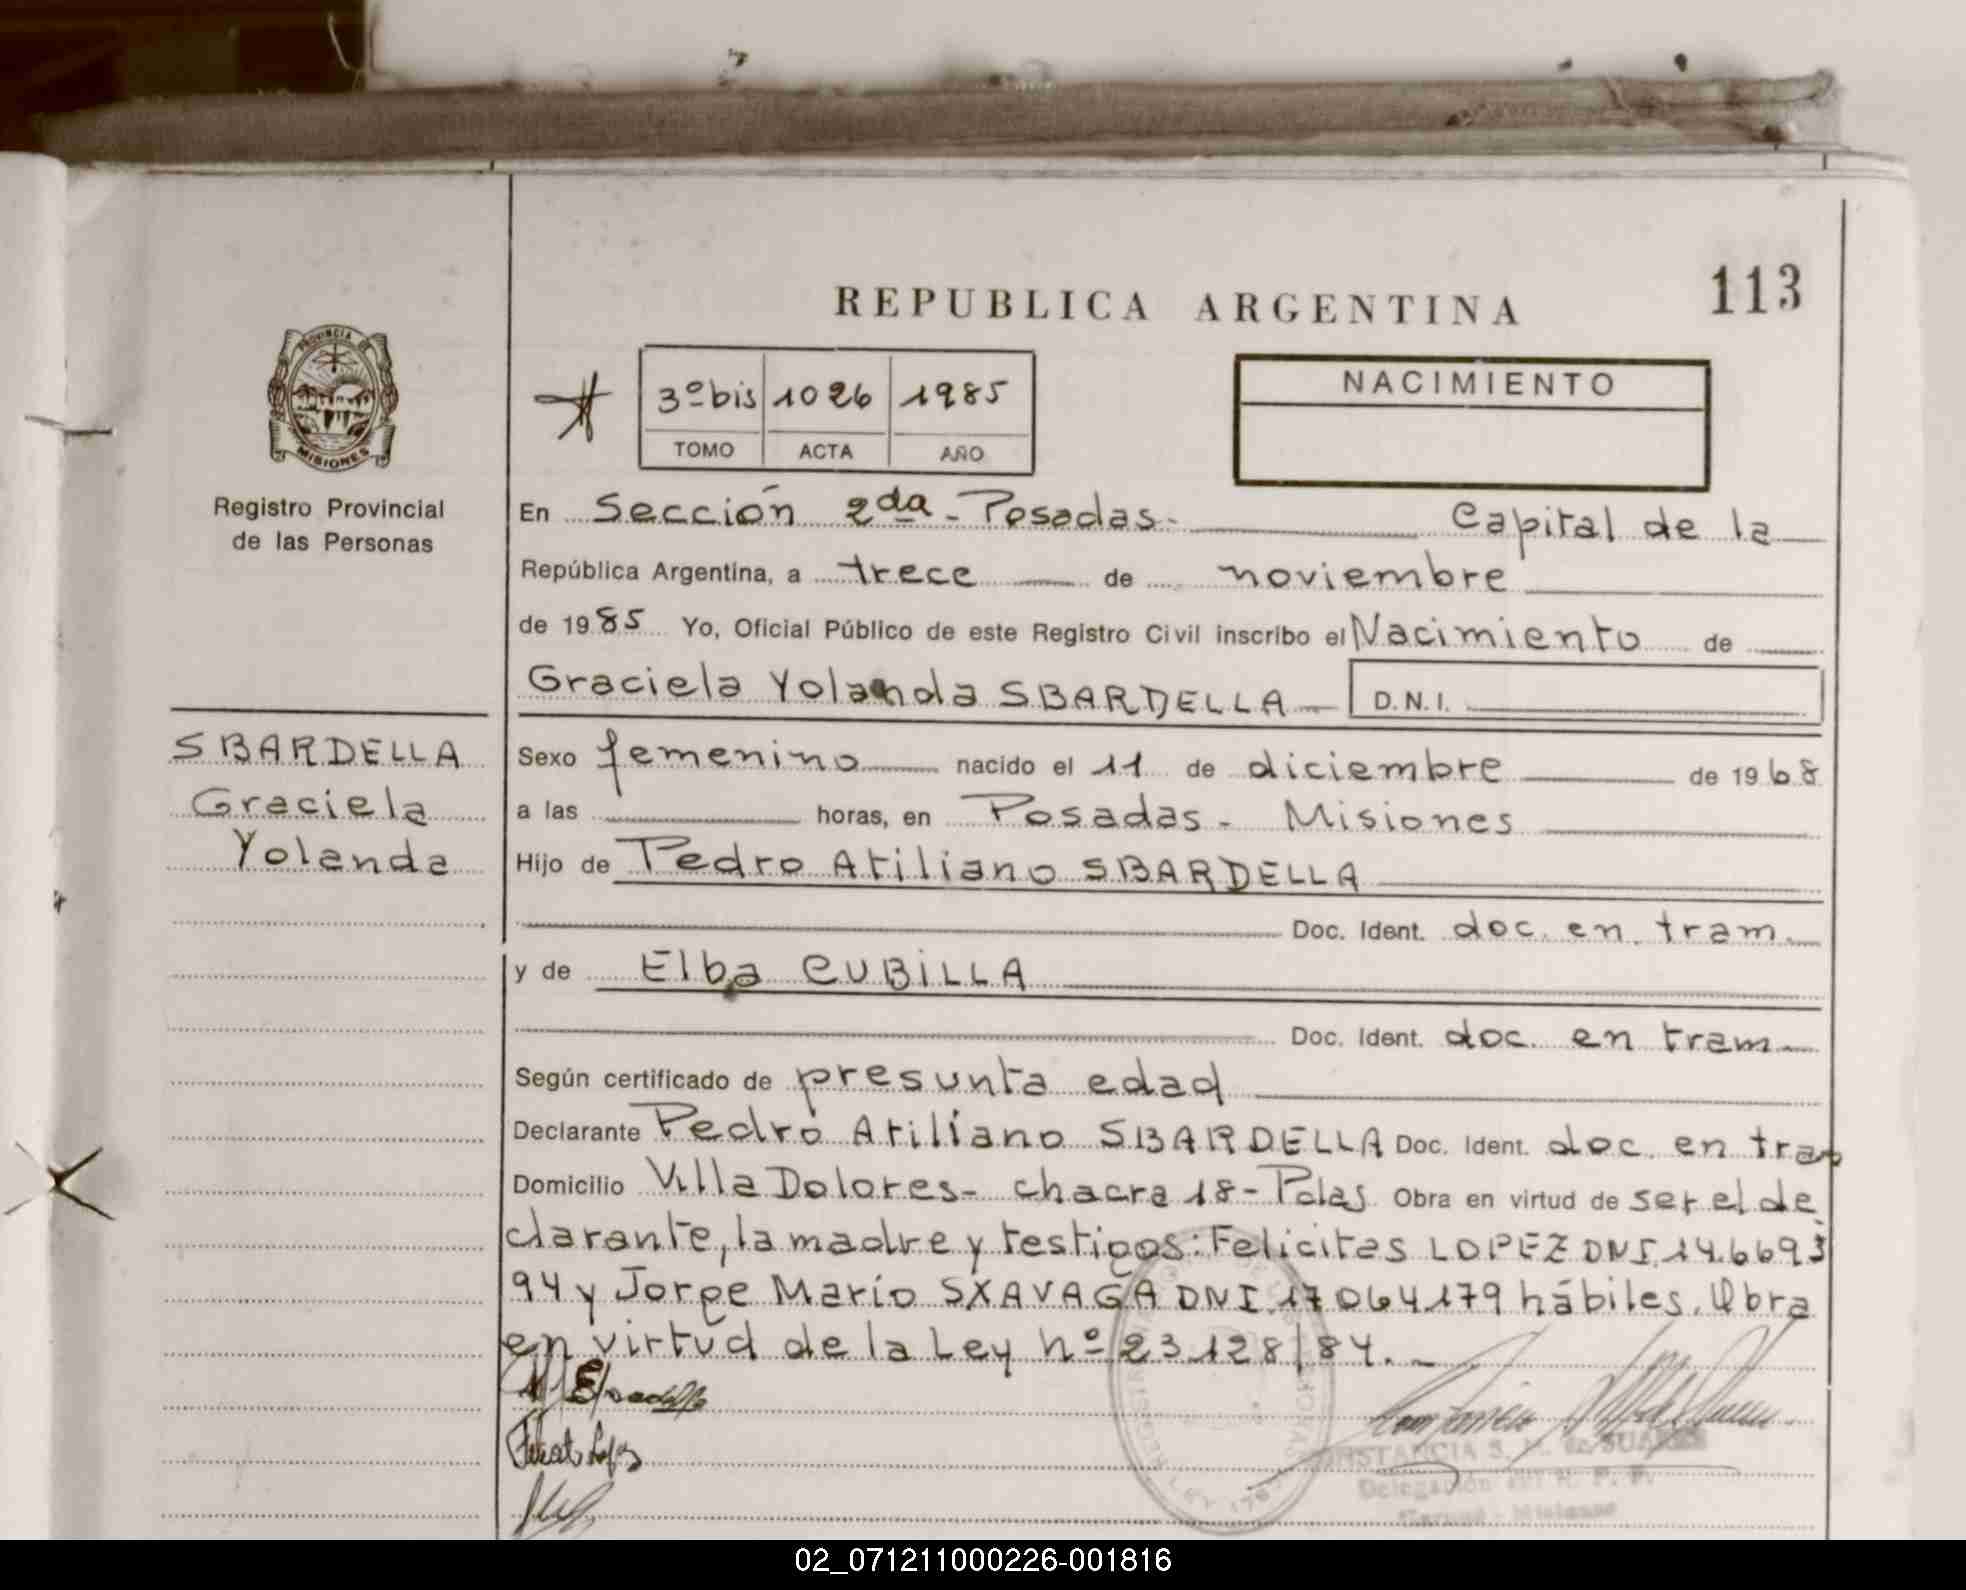 113
REPUBLICA ARGENTINA
PROVINCIA DE
MISIONES
Registro Provincial
de las Personas
3º bis 1026 1985
TOMO ACTA AÑO
NACIMIENTO
En Sección 2da - Posadas - Capital de la
República Argentina, a trece de noviembre
de 1985 Yo, Oficial Público de este Registro Civil inscribo el Nacimiento de
Graciela Yolanda SBARDELLA D.N.I.
SBARDELLA
Graciela
Yolanda
Sexo femenino nacido el 11 de diciembre de 1968
a las horas, en Posadas - Misiones
Hijo de Pedro Atiliano SBARDELLA
Doc. Ident. doc. en tram.
y de Elba CUBILLA
Doc. Ident. doc. en tram
Según certificado de presunta edad
Declarante Pedro Atiliano SBARDELLA Doc. Ident. doc. en tram
Domicilio Villa Dolores - chacra 18 - Pdas Obra en virtud de ser el de
clarante, la madre y testigos: Felicitas LOPEZ DNI 14.6693
94 y Jorge Mario SXAVAGA DNI 17064179 hábiles. Obra
en virtud de la Ley nº 23.128/84. -
DE SUAREZ
Delegación
02_071211000226-001816